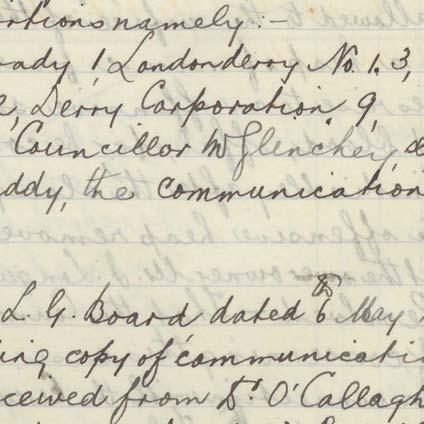 rtions namely:-
ady 1, Londonderry No. 1. 3,
Derry Corporation 9,
Councillor McGlenchey, &
ddy, the communication
L. G. Board dated 6th May
ing copy of communicati
ceived from Dr O'Callagh